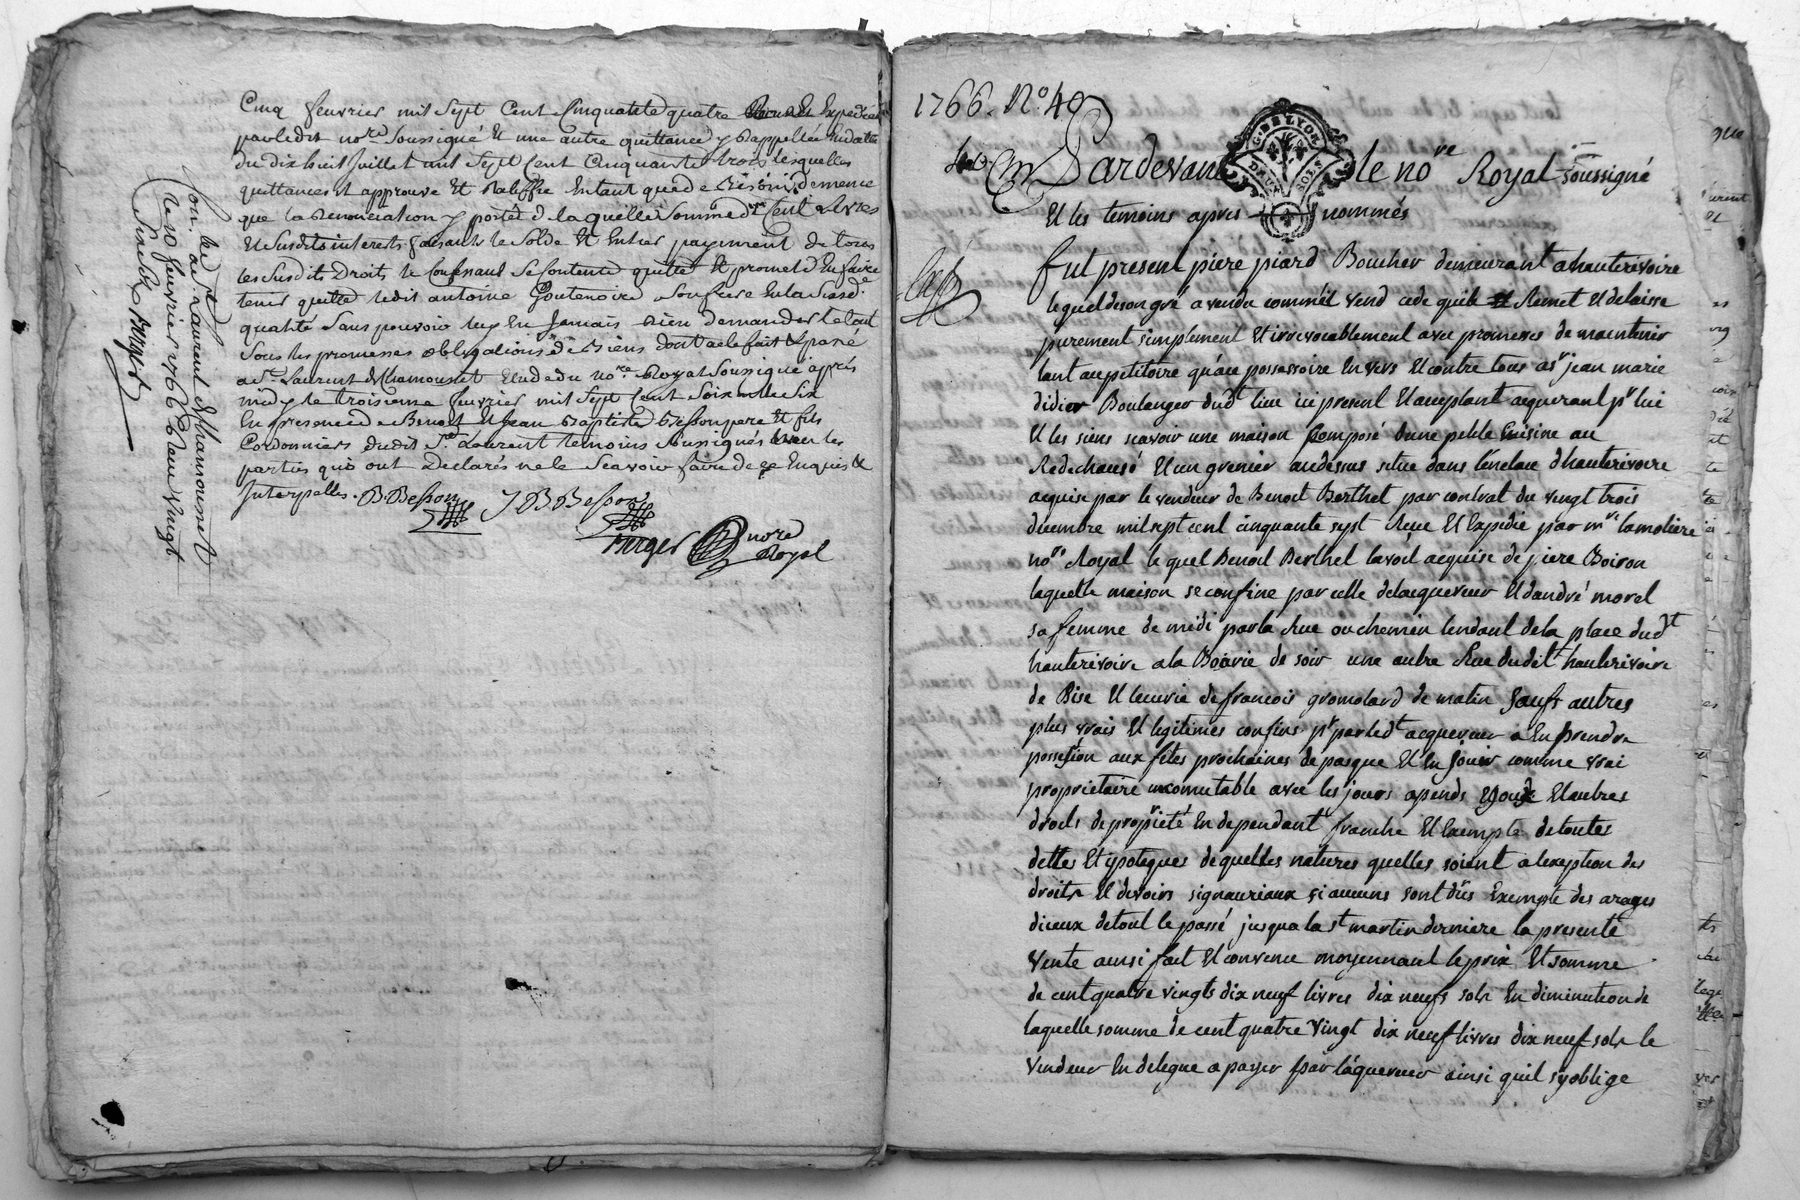 Cinq feuvrier mil Sept Cent Cinquante quatre Expedié
par ledit no.re Soussigné Et une autre quittance y Rappellée Endatte
du dix huit Juillet mil Sept Cent Cinquante trois lesquelles
quittances il approuve Et Ratiffie Entant que de Raison, de meme
que la Renonciation y portée de laquelle Somme de Cent Livres
Et Susdits interests faisants le Solde Et Entier payement de tous
les Susdit Droits le Confessant Se Contente quitte Et promet En faire
tenir quitte ledit antoine Goutenoire
qualité Sans pouvoir luy En Jamais Rien demander le tout
Sous les promesses obligations de Biens dont acte fait & passé
a St. Laurent de Chamousset Etude du no.re Royal Soussigné après
midy le troisieme feuvrier mil Sept Cent Soixante Six
En presence de Benoit Et Jean Baptiste Besson pere Et fils
Cordonniers dudit St Laurent temoins Soussignés avec les
parties qui ont Declarés ne le Scavoir faire de ce Enquis &
Interpellés. B. Besson J B Besson
Berger nore
Royal
Con.lé a St. Laurent de Chamousset
le 10 feuvrier 1766 Reçu vingt
Six Sols Berger
1766. N.o 49
Pardevant le no.re Royal soussigné
G. DE LYON
DEUX SOLS
Et les temoins apres nommés
fut present piere piard Boucher demeurant a hauterivoire
lequel de son gré a vendu comme il vend cede quitte Remet Et delaisse
purement simplement Et irrevocablement avec promesses de maintenir
tant au petitoire qu'au possessoire En vers Et contre tous a sr jean marie
didier Boulanger dudt lieu ici present Et acceptant acquerant pr lui
Et les siens scavoir une maison Composé dune petite Cuisine au
Redechaussé Et un grenier audessus situé dans lenclos d'hauterivoire
acquise par le vendeur de Benoit Berthet par contrat du vingt trois
decembre mil sept cent cinquante sept Recu Et Expedié par mre lamoliere
nore Royal lequel Benoit Berthet lavoit acquise de piere Boiron
laquelle maison se confine par celle de lacquereur Et dandré morel
sa femme de midi par la Rue ou chemin tendant de la place dudt
hauterivoire a la Boirie de soir une autre Rue dudit hauterivoire
de Bise Et lecurie de francois gromolard de matin sauf autres
plus vrais Et legitimes confins pr par ledt acquereur En prendre
possession aux fetes prochaines de pasque Et En jouir comme vrai
proprietaire incomutable avec les jours apends Et autres
droits de propriété En dependant franche Et Exempte de toutes
dettes Et ypoteques de quelles natures quelles soient a lexeption des
droits Et devoirs signauriaux si aucuns sont dûs Exempte des arages
diceux de tout le passé jusqua la st martin derniere la presente
vente ainsi fait Et convenue moyennant le prix Et somme
de cent quatre vingts dix neuf livres dix neufs sols En diminution de
laquelle somme de cent quatre vingt dix neuf livres dix neuf sols le
vendeur En delegue a payer par láquereur ainsi quil s'yoblige